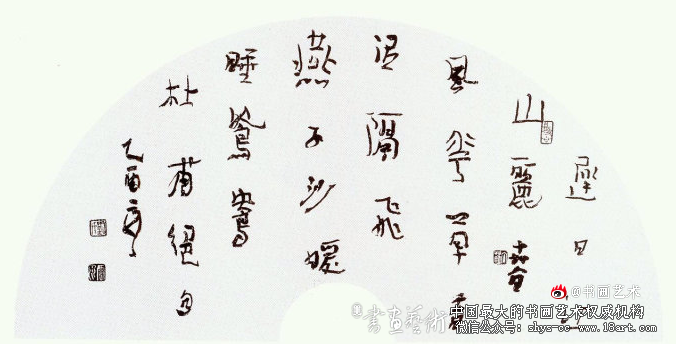 遲日江
山麗春
風花草香
泥融飛
燕子沙暖
睡鴛鴦
杜甫絕句
乙酉
@书画艺术
書畫藝術
中国最大的书画艺术权威机构
微信公众号：shys-cc www.18art.com